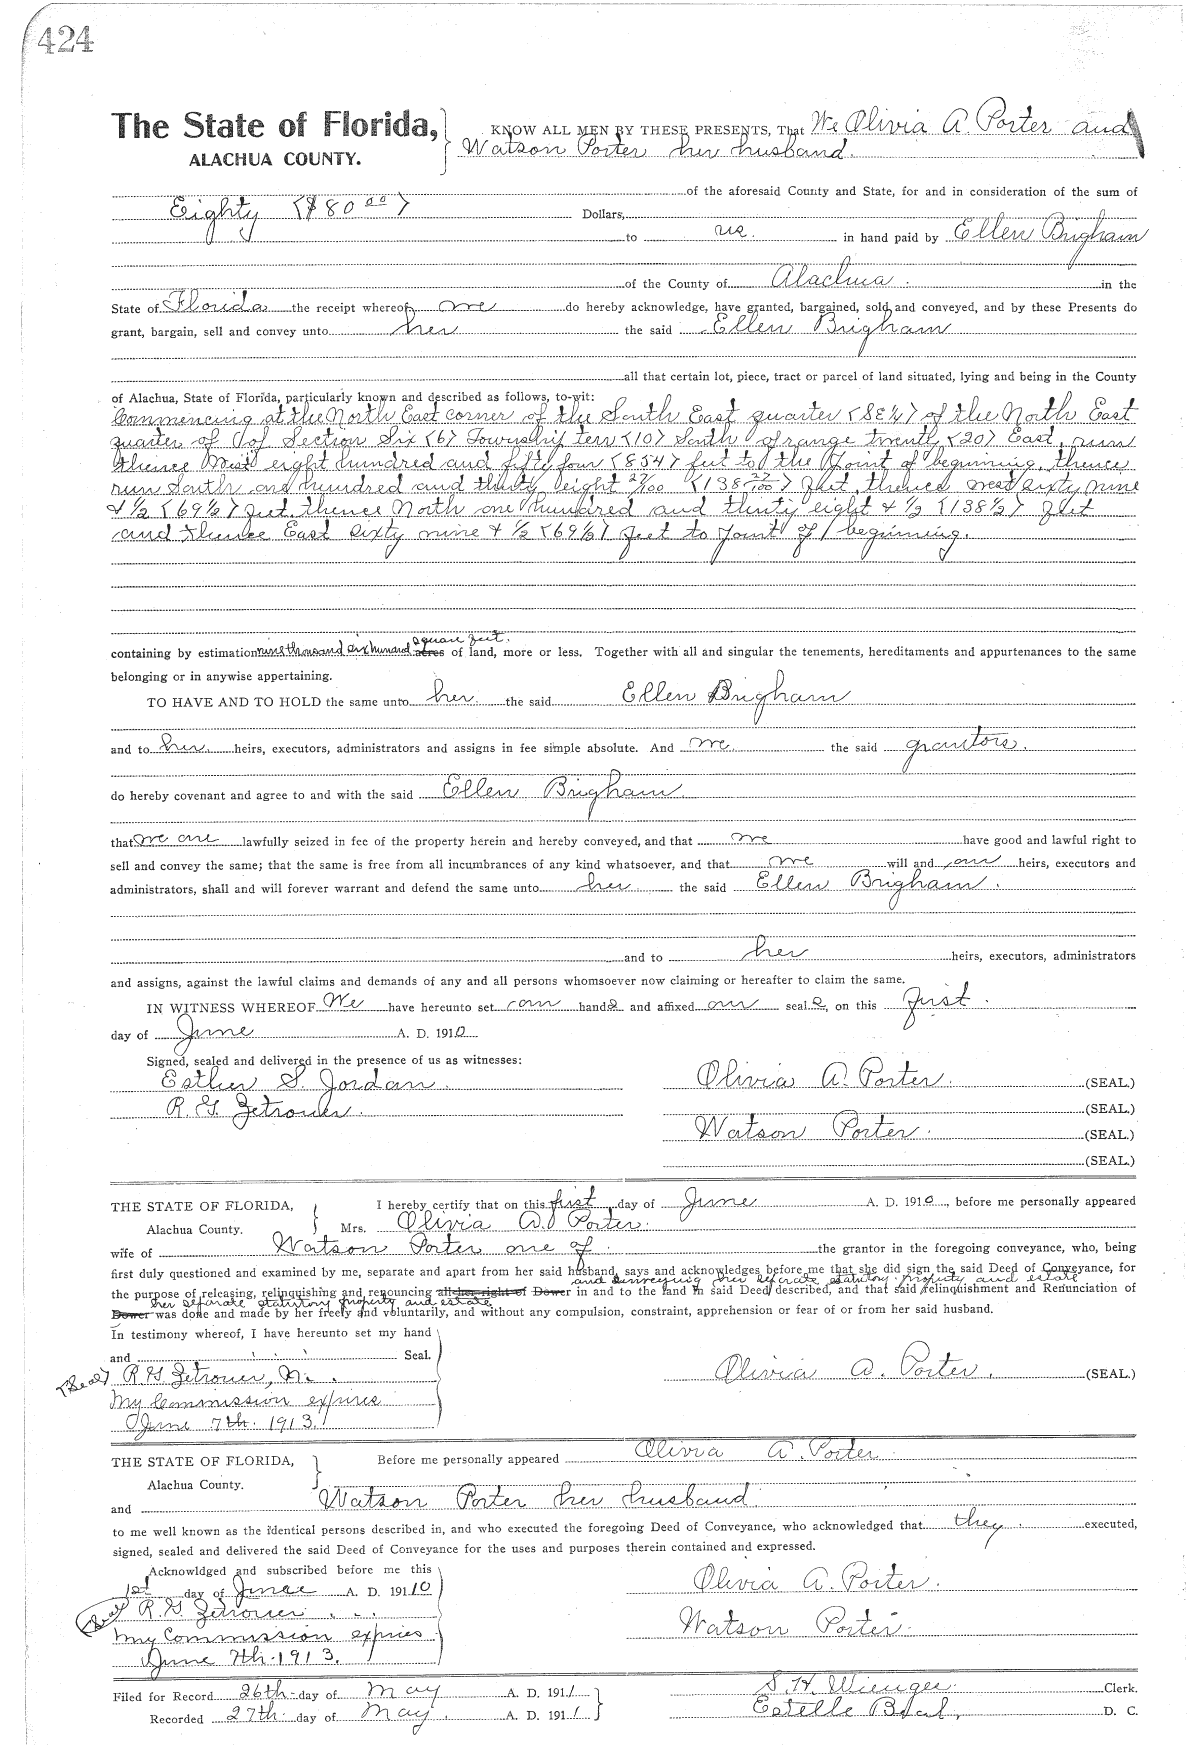 424
The State of Florida, KNOW ALL MEN BY THESE PRESENTS, That We Olivia A. Porter and
ALACHUA COUNTY. Watson Porter her husband.
of the aforesaid County and State, for and in consideration of the sum of
Eighty ($80 00) Dollars,
to us. in hand paid by Ellen Brigham
of the County of Alachua. in the
State of Florida the receipt whereof we do hereby acknowledge, have granted, bargained, sold and conveyed, and by these Presents do
grant, bargain, sell and convey unto her the said Ellen Brigham
all that certain lot, piece, tract or parcel of land situated, lying and being in the County
of Alachua, State of Florida, particularly known and described as follows, to-wit:
Commencing at the North East corner of the South East quarter (SE¼) of the North East
quarter of of Section Six (6) Township ten (10) South of range twenty (20) East, run
thence West eight hundred and fifty four (854) feet to the Point of beginning. thence
run South one hundred and thirty eight 27/100 (138 27/100) feet, thence west sixty nine
& ½ (69½) feet. thence North one hundred and thirty eight & ½ (138½) feet
and thence East sixty nine & ½ (69½) feet to Point of beginning.
square feet.
containing by estimation nine thousand six hundred acres of land, more or less. Together with all and singular the tenements, hereditaments and appurtenances to the same
belonging or in anywise appertaining.
TO HAVE AND TO HOLD the same unto her the said Ellen Brigham
and to her heirs, executors, administrators and assigns in fee simple absolute. And we the said grantors.
do hereby covenant and agree to and with the said Ellen Brigham
that we are lawfully seized in fee of the property herein and hereby conveyed, and that we have good and lawful right to
sell and convey the same; that the same is free from all incumbrances of any kind whatsoever, and that we will and our heirs, executors and
administrators, shall and will forever warrant and defend the same unto her the said Ellen Brigham.
and to her heirs, executors, administrators
and assigns, against the lawful claims and demands of any and all persons whomsoever now claiming or hereafter to claim the same.
IN WITNESS WHEREOF We have hereunto set our hands and affixed our seals, on this first.
day of June A. D. 1910
Signed, sealed and delivered in the presence of us as witnesses:
Esther S. Jordan. Olivia A. Porter. (SEAL.)
R. G. Zetrouer. (SEAL.)
Watson Porter. (SEAL.)
(SEAL.)
THE STATE OF FLORIDA, I hereby certify that on this first day of June A. D. 1910, before me personally appeared
Alachua County. Mrs. Olivia A. Porter.
wife of Watson Porter one of the grantor in the foregoing conveyance, who, being
first duly questioned and examined by me, separate and apart from her said husband, says and acknowledges before me that she did sign the said Deed of Conveyance, for
and conveying her separate statutory property and estate
the purpose of releasing, relinquishing and renouncing all her right of Dower in and to the land in said Deed described, and that said relinquishment and Renunciation of
her separate statutory property and estate
Dower was done and made by her freely and voluntarily, and without any compulsion, constraint, apprehension or fear of or from her said husband.
In testimony whereof, I have hereunto set my hand
and Seal.
(Seal) R. G. Zetrouer, N. Olivia A. Porter. (SEAL.)
My Commission expires
June 7th. 1913.
THE STATE OF FLORIDA, Before me personally appeared Olivia A. Porter
Alachua County.
and Watson Porter her husband
to me well known as the identical persons described in, and who executed the foregoing Deed of Conveyance, who acknowledged that they executed,
signed, sealed and delivered the said Deed of Conveyance for the uses and purposes therein contained and expressed.
Acknowldged and subscribed before me this
1st day of June A. D. 19110 Olivia A. Porter.
(Seal) R. G. Zetrouer
My Commission expires Watson Porter.
June 7th. 1913.
Filed for Record 26th day of May A. D. 1911 S. H. Wienges Clerk.
Recorded 27th. day of May. A. D. 1911 Estelle D. C.